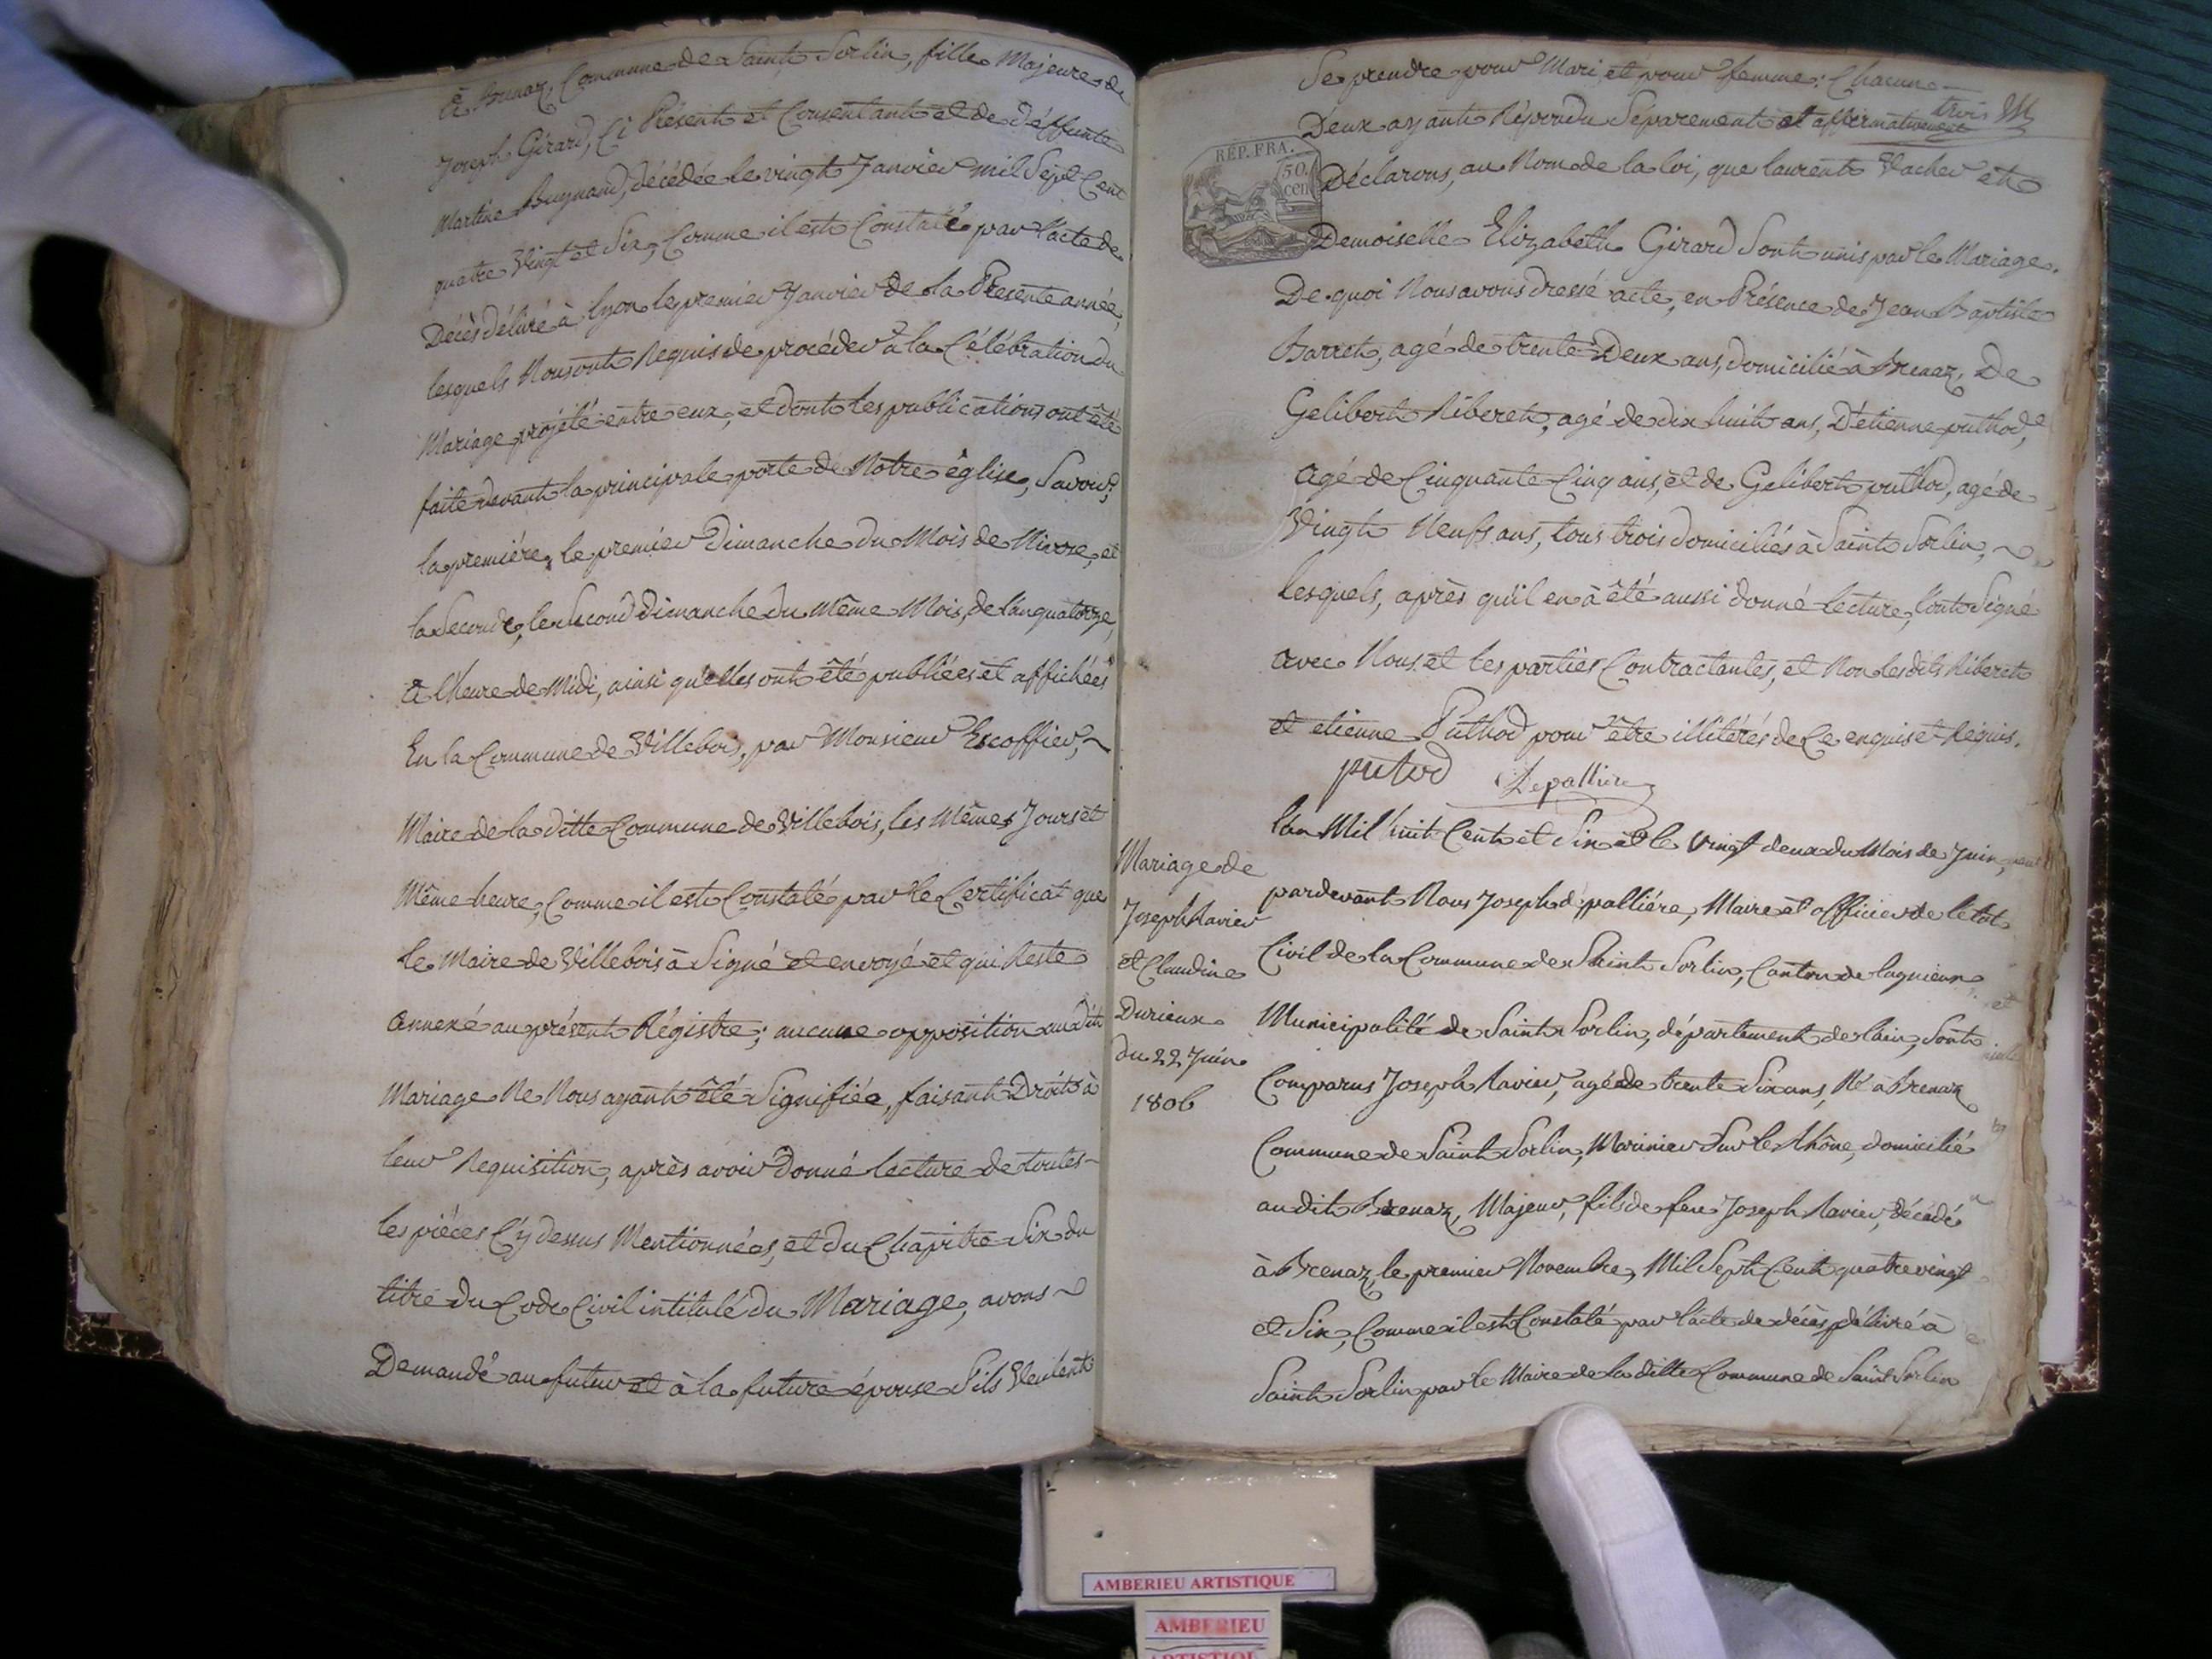 à Brenaz, Commune de Saint Sorlin, fille Majeure de
Joseph Girard, Ci Présent et Consentant et de déffunte
Martine Bugnand, décédée le vingt Janvier mil Sept Cent
quatre Vingt et Six, Comme il est Constaté par l'acte de
Décès délivré à lyon le premier Janvier de la Présente année,
lesquels Nous ont Requis de procéder à la Célébration du
Mariage projété entre eux, et dont les publications ont été
faite devant la principale porte de Notre église, Savoir;
la premiére, le premier Dimanche du Mois de Nivose, et
la Seconde, le Second Dimanche du même Mois, de l'an quatorze,
à l'heure de Midi, ainsi qu'elles ont été publiées et affichées
En la Commune de Villebois, par Monsieur Escoffier, ~
Maire de la ditte Commune de Villebois, les Mêmes Jours et
Même heure, Comme il est Constaté par le Certificat que
le Maire de Villebois à Signé et envoyé et qui Reste
annexé au présent Régistre; aucune opposition au dit
Mariage Ne Nous ayant été Signifiée, faisant Droit à
leur Requisition, après avoir donné lecture de toutes ~
les piéces Cy dessus Mentionnées, et du Chapitre Six du
titre du Code Civil intitulé du Mariage, avons ~
Demandé au futur et à la future épouse S'ils Veulent
Se prendre pour Mari et pour femme: Chacun
trois
Deux ayant Répondu Séparement et affirmativement
RÉP. FRA.
50 cen
Déclarons, au Nom de la loi, que laurent Vacher et
Demoiselle Elizabeth Girard Sont unis par le Mariage.
De quoi Nous avons dressé acte, en Présence de Jean Baptiste
Barret, agé de trente Deux ans, domicilié à Brenaz, De
Gelibert Riberet, agé de dix huit ans, D'étienne puthod,
agé de Cinquante Cinq ans, et de Gelibert puthod, agé de
Vingt Neufs ans, tous trois domiciliés à Saint Sorlin, ~
lesquels, après qu'il en à été aussi donné lecture, l'ont Signé
avec Nous et les parties Contractantes, et Non lesdits Riberet
et etienne Puthod pour être illitérés de Ce enquis et Réquis.
putod Depalliere
l'an Mil huit Cent et Six et le Vingt deux du Mois de Juin,
pardevant Nous Joseph dépalliére, Maire et officier de l'état
Civil de la Commune de Saint Sorlin, Canton de lagnieux
Municipalité de Saint Sorlin, département de l'ain, Sont
Comparus Joseph Ravier, agé de trente Six ans, Né à Brenaz
Commune de Saint Sorlin, Marinier Sur le Rhône, domicilié
au dit Brenaz, Majeur, fils de feu Joseph Ravier, décédé
à Brenaz, le premier Novembre, Mil Sept Cent quatre vingt
et Six, Comme il est Constaté par l'acte de décès délivré à
Saint Sorlin par le Maire de la ditte Commune de Saint Sorlin
Mariage de
Joseph Ravier
et Claudine
Durieux
du 22 Juin
1806
AMBERIEU ARTISTIQUE
AMBERIEU
ARTISTIQUE